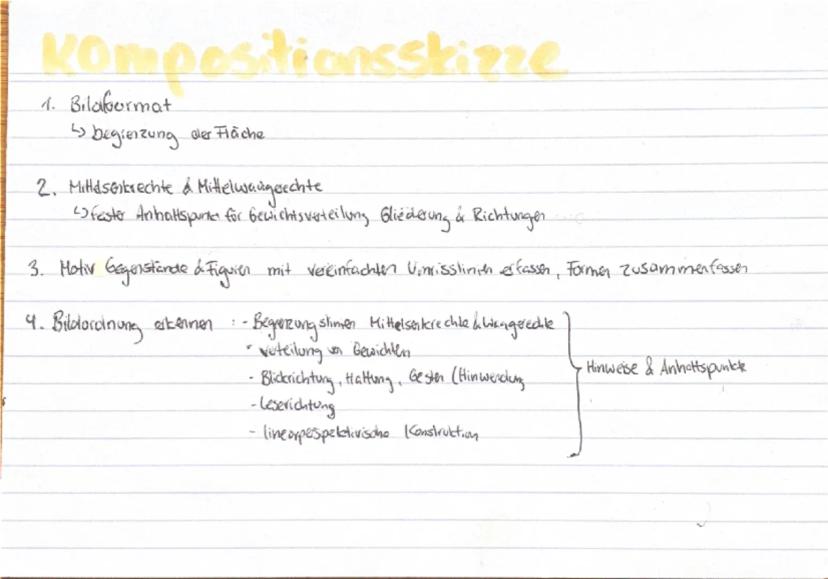 Kompositionsskizze
1. Bildformat
↳ Begrenzung der Fläche
2. Mittelsenkrechte & Mittelwaagerechte
↳ fester Anhaltspunkt für Gewichtsverteilung, Gliederung & Richtungen
3. Motiv Gegenstände & Figuren mit vereinfachten Umrisslinien erfassen, Formen zusammenfassen
4. Bildordnung erkennen : - Begrenzungslinien Mittelsenkrechte & Waagerechte
- Verteilung von Gewichten
- Blickrichtung, Haltung, Gesten (Hinwendung
Hinweise & Anhaltspunkte
- Leserichtung
- linearperspektivische Konstruktion